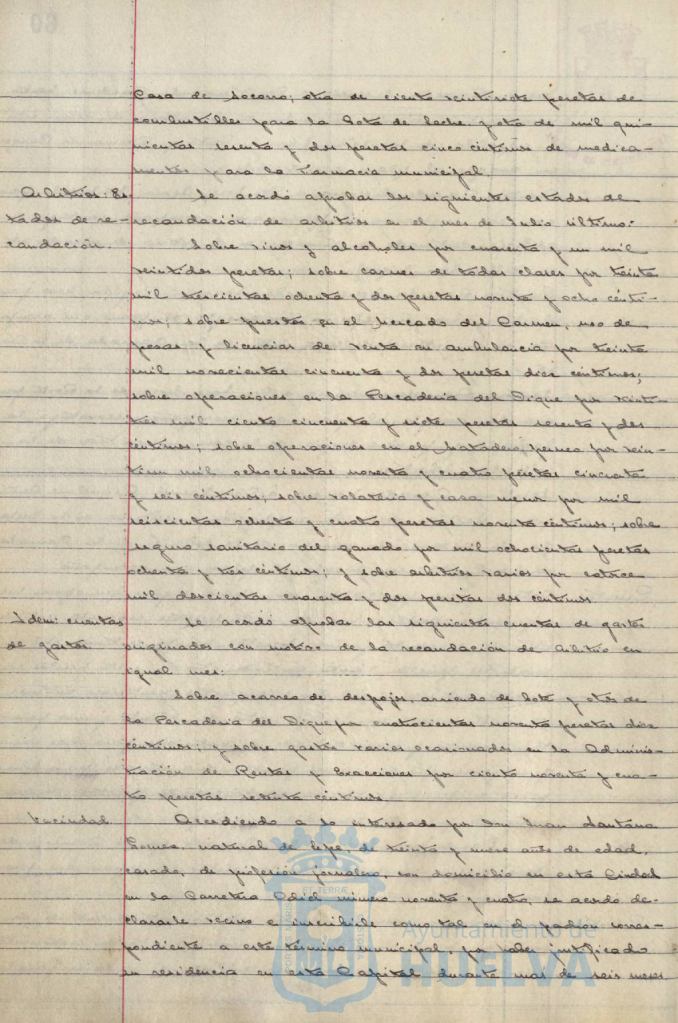 Casa de Socorro; otra de ciento veintisiete pesetas de
combustibles para la Gota de Leche y otra de mil qui-
nientas sesenta y dos pesetas cinco céntimos de medica-
mentos para la Farmacia municipal.
Arbitrios: Es-
tados de re-
caudación.
Se acordó aprobar los siguientes estados de
recaudación de arbitrios en el mes de Julio último:
Sobre vinos y alcoholes por cuarenta y un mil
veintidos pesetas; sobre carnes de todas clases por treinta
mil trescientas ochenta y dos pesetas noventa y ocho cénti-
mos; sobre puestos en el Mercado del Carmen, uso de
pesas y licencias de venta en ambulancia por treinta
mil novecientas cincuenta y dos pesetas diez céntimos;
sobre operaciones en la Pescadería del Dique por veinti-
trés mil ciento cincuenta y siete pesetas sesenta y dos
céntimos; sobre operaciones en el Matadero, por vein-
tiun mil ochocientas noventa y cuatro pesetas cincuenta
y seis céntimos; sobre volatería y caza menor por mil
seiscientas ochenta y cuatro pesetas noventa céntimos; sobre
seguro sanitario del ganado por mil ochocientas pesetas
ochenta y tres céntimos; y sobre arbitrios varios por catorce
mil doscientas cuarenta y dos pesetas dos céntimos.
Idem: cuentas
de gastos
Se acordó aprobar las siguientes cuentas de gastos
originados con motivo de la recaudación de Arbitrio en
igual mes:
Sobre acarreo de despojos, arriendo de bote y otros de
la Pescadería del Dique por cuatrocientas noventa pesetas diez
céntimos; y sobre gastos varios ocasionados en la Adminis-
tración de Rentas y Exacciones por ciento noventa y cua-
tro pesetas setenta céntimos.
Vecindad
Accediendo a lo interesado por Don Juan Santana
Gomez, natural de Lepe, de treinta y nueve años de edad,
casado, de profesión jornalero, con domicilio en esta Ciudad
en la Carretera Odiel número noventa y cuatro, se acordó de-
clararle vecino e inscribirle como tal en el padrón corres-
pondiente a este término municipal, por haber justificado
su residencia en esta Capital durante mas de seis meses
Ayuntamiento de
HUELVA